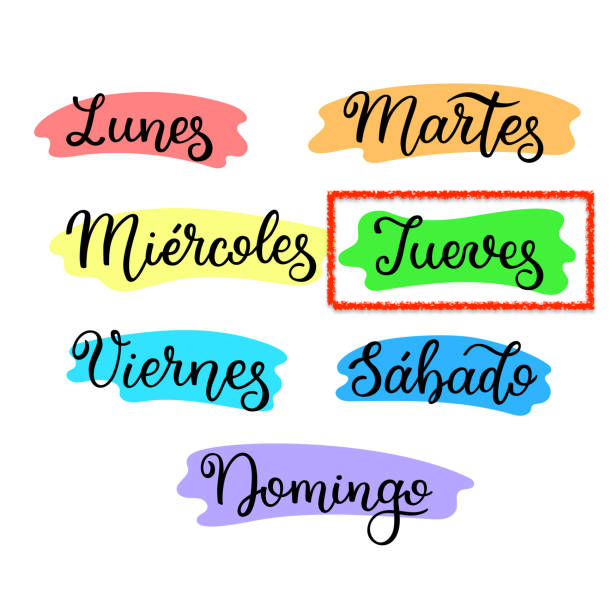 Lunes
Martes
Miércoles
Jueves
Viernes
Sábado
Domingo